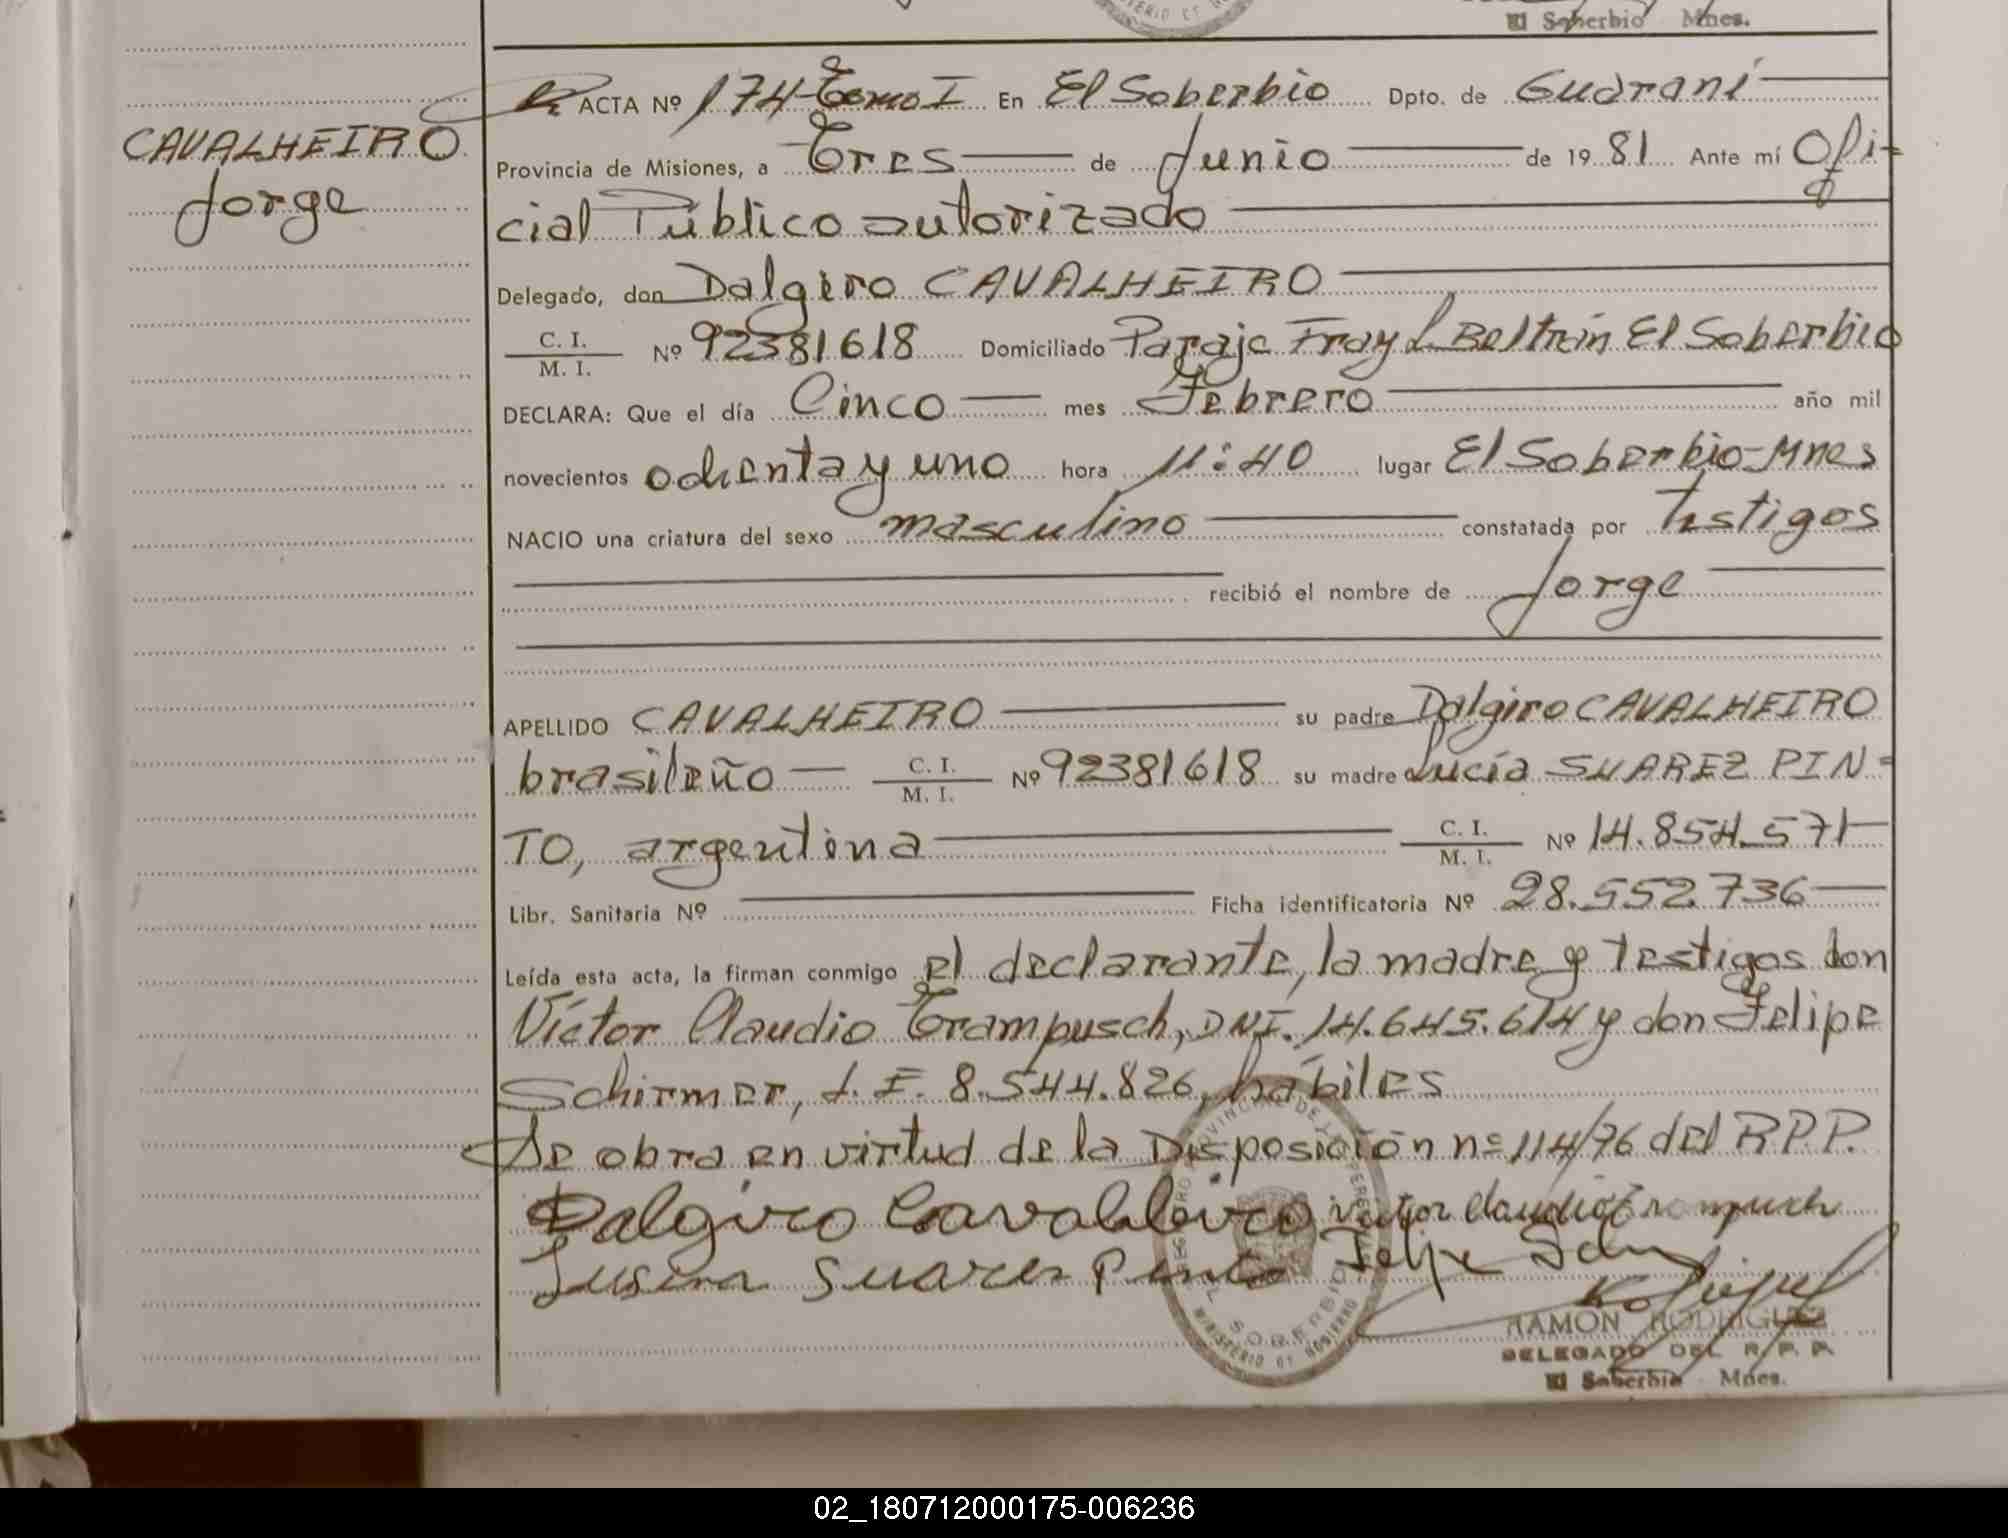 El Soberbio Mnes.
CAVALHEIRO
Jorge
ACTA Nº 174-Tomo I En El Soberbio Dpto. de Guaraní
Provincia de Misiones, a Tres de Junio de 1981 Ante mí Ofi-
cial Público autorizado
Delegado, don Dalgiro CAVALHEIRO
C. I.
M. I. Nº 92381618 Domiciliado Paraje Fray L. Beltrán El Soberbio
DECLARA: Que el día Cinco mes Febrero año mil
novecientos ochenta y uno hora 11:40 lugar El Soberbio-Mnes
NACIO una criatura del sexo masculino constatada por testigos
recibió el nombre de Jorge
APELLIDO CAVALHEIRO su padre Dalgiro CAVALHEIRO
brasileño C. I. M. I. Nº 92381618 su madre Lucía SUAREZ PIN-
TO, argentina C. I. M. I. Nº 14.854.571
Libr. Sanitaria Nº Ficha identificatoria Nº 28.552.736
Leída esta acta, la firman conmigo el declarante, la madre y testigos don
Víctor Claudio Trampusch, DNI. 14.645.614 y don Felipe
Schirmer, L.E. 8.544.826, hábiles
Se obra en virtud de la Disposición nº 114/76 del R.P.P.
Dalgiro Cavalheiro Victor Claudio Trampuch
Suares Pinto Felipe
RAMON RODRIGUEZ
DELEGADO DEL R. P. P.
El Soberbio Mnes.
EL SOBERBIO
MINISTERIO DE GOBIERNO
02_180712000175-006236